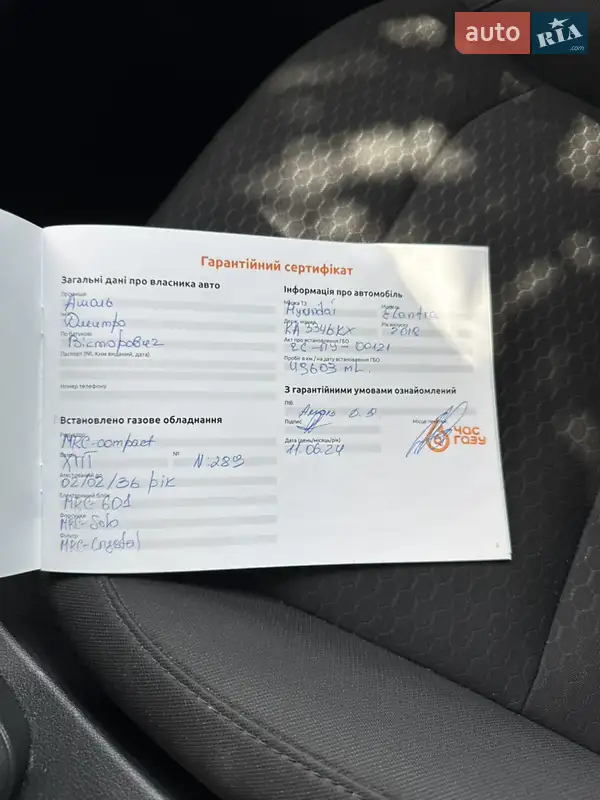 auto RIA .com
Гарантійний сертифікат
Загальні дані про власника авто
Дмитро
Вікторович
Паспорт (№, Ким виданий, дата)
Номер телефону
Встановлено газове обладнання
MRC-compact
ХТТ
№ N:289
02/02/36 рік
Електронний блок
MRC-601
MRC-Solo
Фільтр
MRC-Crystal
Інформація про автомобіль
Марка ТЗ
Hyundai
Модель
Elantra
KA 5346KX
2018
Акт про встановлення ГБО
ЕС-ПУ-00121
Пробіг в км / на дату встановлення ГБО
49603 mL.
З гарантійними умовами ознайомлений
ПІБ
Підпис
Місце печатки
ЧАС ГАЗУ
Дата (день/місяць/рік)
11.06.24